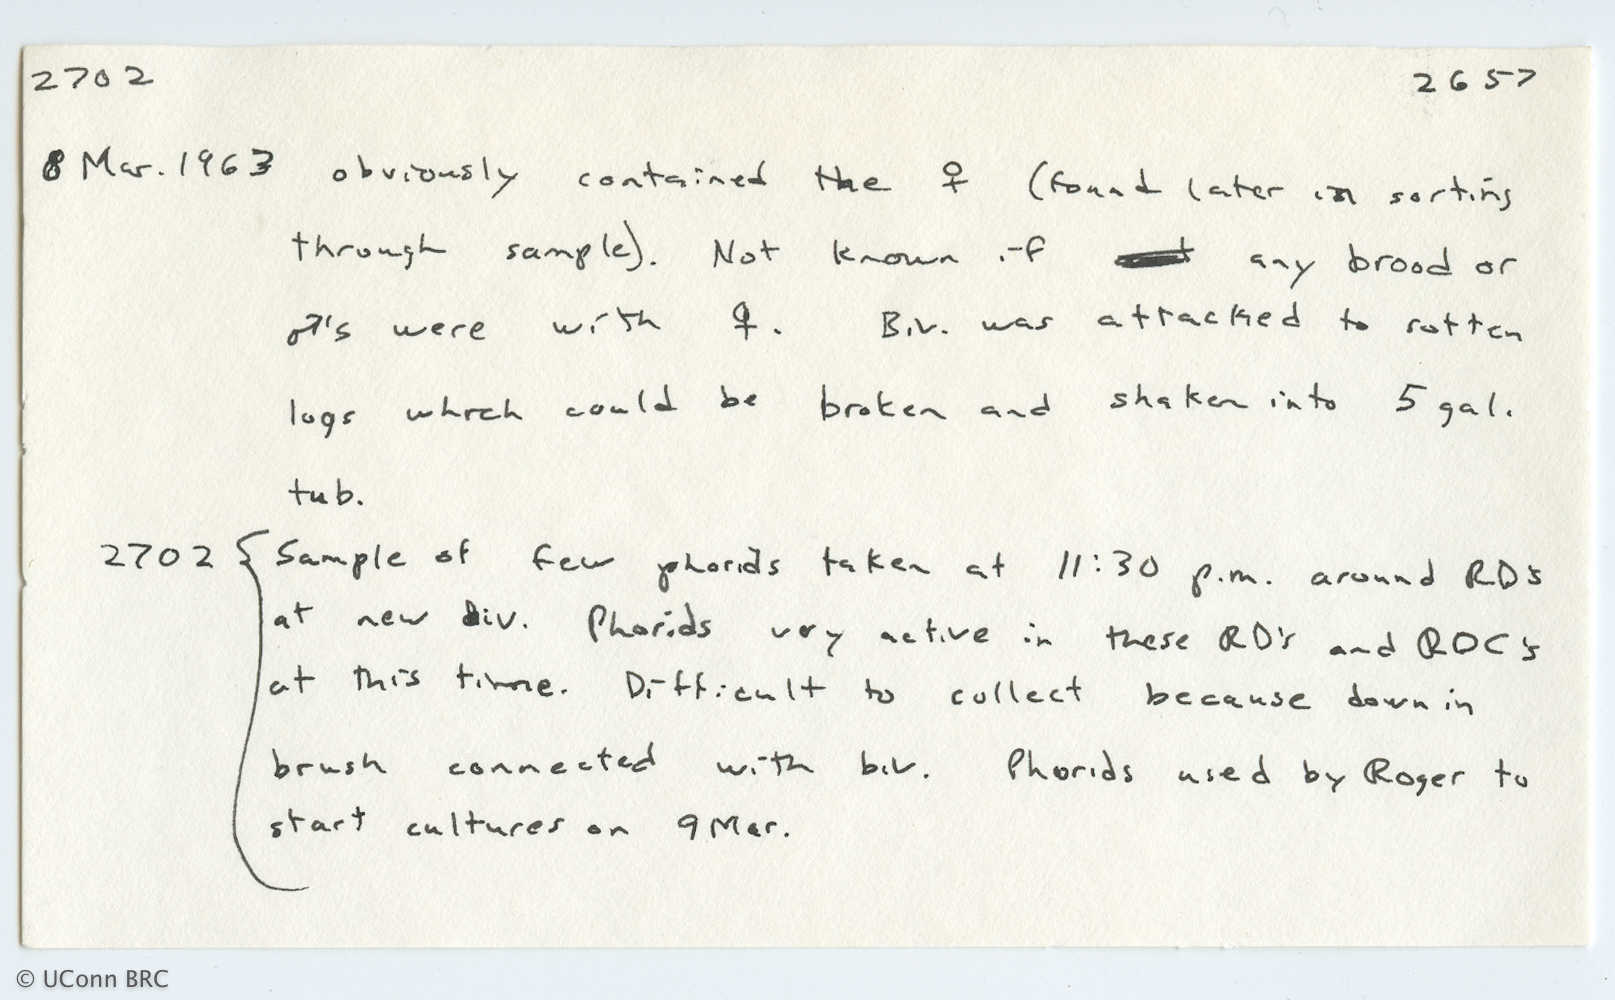 2702 2657
8 Mar. 1963 obviously contained the ♀ (found later in sorting
through sample). Not known if any brood or
♂'s were with ♀. Biv. was attacked to rotten
logs which could be broken and shaken into 5 gal.
tub.
2702 { Sample of few phorids taken at 11:30 p.m. around RD's
at new biv. Phorids very active in these RD's and RDC's
at this time. Difficult to collect because down in
brush connected with biv. Phorids used by Roger to
start cultures on 9 Mar.
© UConn BRC